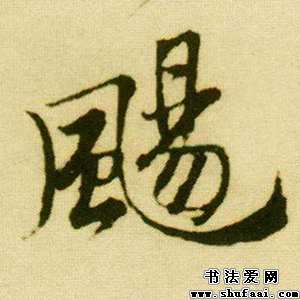 颺
书法爱网
www.shufaai.com